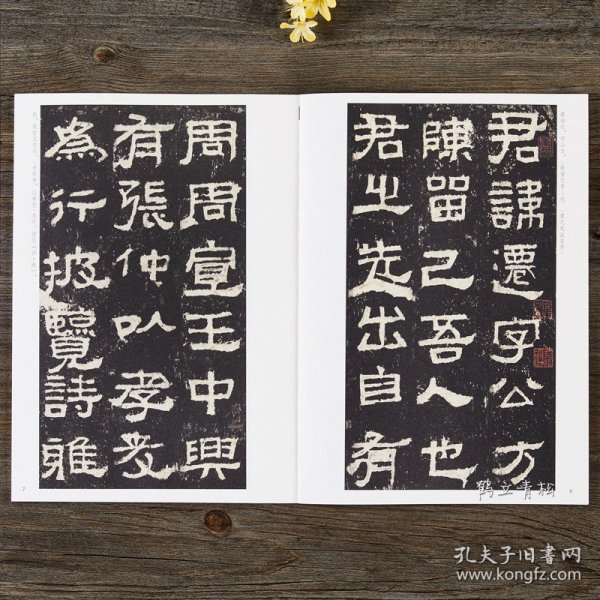 君諱遷字公方
陳留己吾人也
君之先出自有
周周宣王中興
有張仲以孝友
為行披覽詩雅
鹤立青松
6
7
孔夫子旧书网
www.kongfz.com